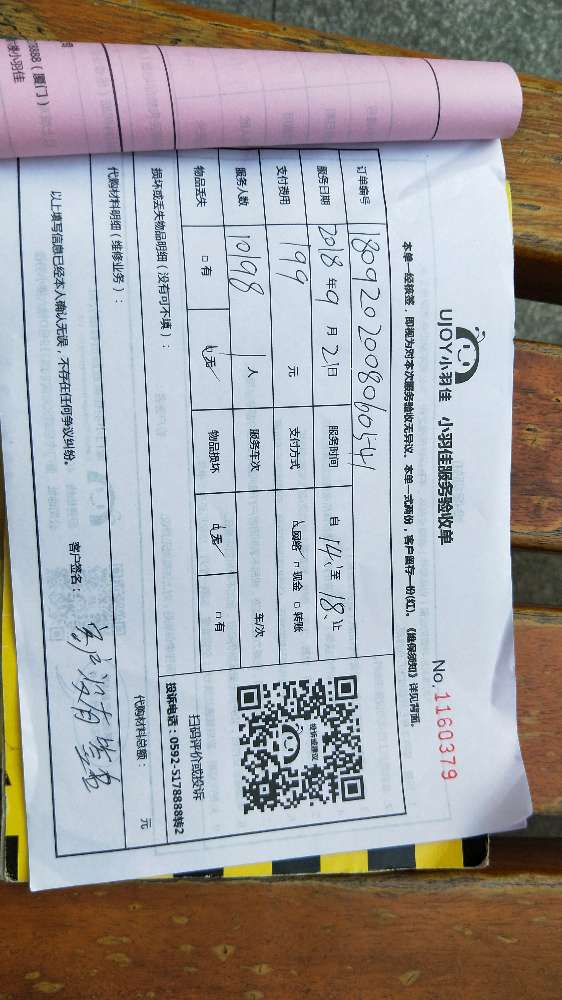 UJOY小羽佳 小羽佳服务验收单
No. 1160379
本单一经核签，即视为对本次服务验收无异议。本单一式两份，客户留存一份(红)。《维保须知》详见背面。
订单编号 180920200806054
服务日期 2018 年 9 月 21 日 服务时间 自 14: 至 18: 止
支付费用 199 元 支付方式 网络 □ 现金 □ 转账
服务人数 10198 1 人 服务车次 车/次
物品丢失 □ 有 无 物品损坏 无 □ 有
投诉或建议
扫码评价或投诉
投诉电话：0592-5178888转2
损坏或丢失物品明细（没有可不填）：
代购材料明细（维修业务）： 代购材料总额： 元
以上填写信息已经本人确认无误，不存在任何争议纠纷。 客户签名： 客户没有签名
8888（厦门）
小羽佳